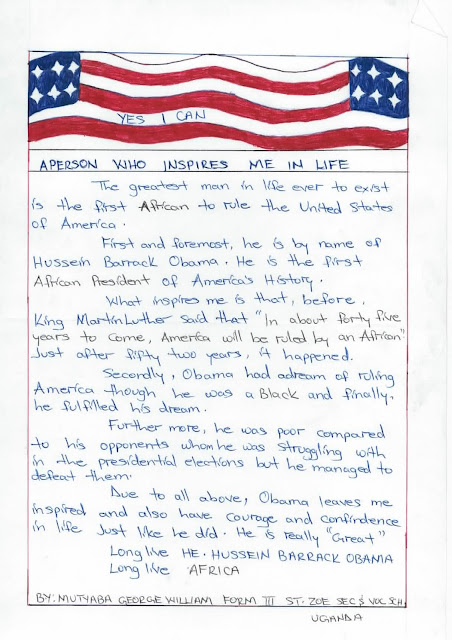 YES I CAN
APERSON WHO INSPIRES ME IN LIFE
The greatest man in life ever to exist
is the first African to rule the United States
of America.
First and foremost, he is by name of
Hussein Barrack Obama. He is the first
African President of America's History.
What inspires me is that, before,
King Martin Luther said that "In about forty five
years to come, America will be ruled by an African"
Just after fifty two years, it happened.
Secordly, Obama had adream of ruling
America though, he was a Black and finally,
he fulfilled his dream.
Further more, he was poor compared
to his opponents whom he was struggling with
in the presidential elections but he managed to
defeat them.
Due to all above, Obama leaves me
inspired and also have courage and confindence
in life Just like he did. He is really "Great"
Long live HE. HUSSEIN BARRACK OBAMA
Long live AFRICA
BY: MUTYABA GEORGE WILLIAM FORM III ST. ZOE SEC $ VOC SCH.
UGANDA